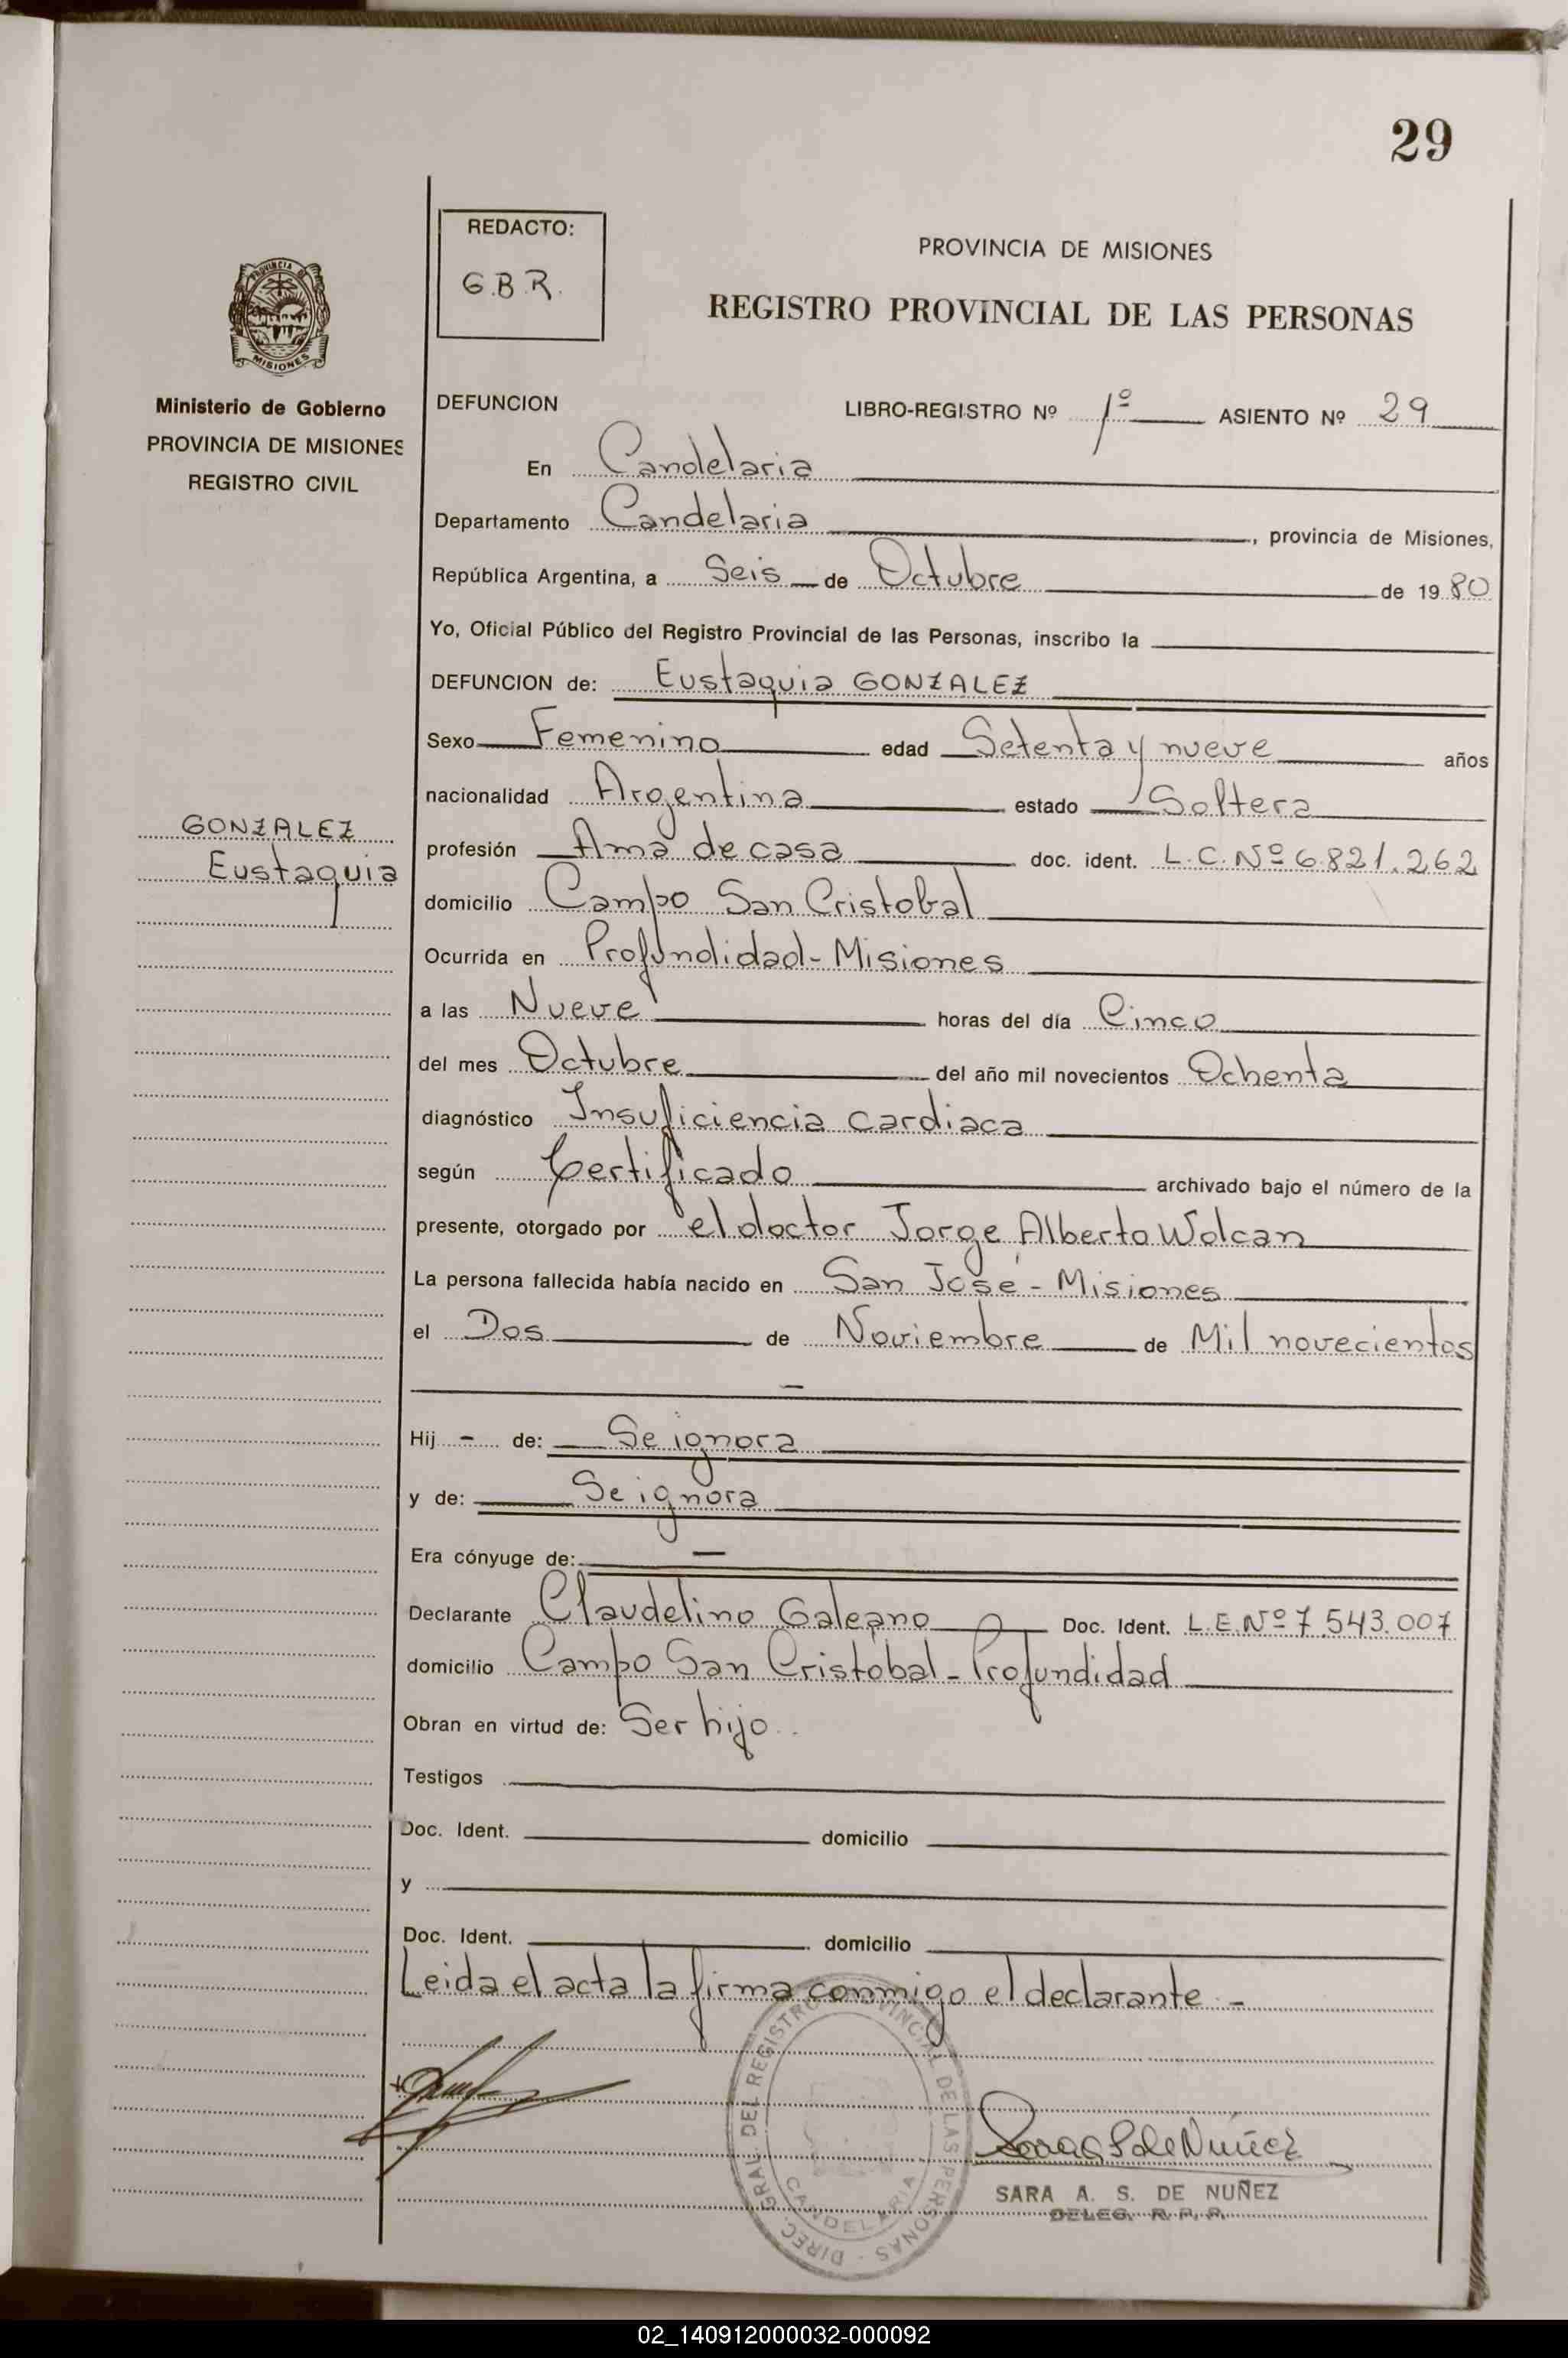 29
REDACTO:
G.B.R.
PROVINCIA DE MISIONES
REGISTRO PROVINCIAL DE LAS PERSONAS
PROVINCIA DE
MISIONES
Ministerio de Gobierno
PROVINCIA DE MISIONES
REGISTRO CIVIL
DEFUNCION LIBRO-REGISTRO Nº 1º ASIENTO Nº 29
En Candelaria
Departamento Candelaria, provincia de Misiones,
República Argentina, a Seis de Octubre de 1980
Yo, Oficial Público del Registro Provincial de las Personas, inscribo la
DEFUNCION de: Eustaquia GONZALEZ
Sexo Femenino edad Setenta y nueve años
nacionalidad Argentina estado Soltera
GONZALEZ
Eustaquia
profesión Ama de casa doc. ident. L.C.Nº 6.821.262
domicilio Campo San Cristobal
Ocurrida en Profundidad - Misiones
a las Nueve horas del día Cinco
del mes Octubre del año mil novecientos Ochenta
diagnóstico Insuficiencia cardiaca
según Certificado archivado bajo el número de la
presente, otorgado por el doctor Jorge Alberto Wolcan
La persona fallecida había nacido en San José - Misiones
el Dos de Noviembre de Mil novecientos
Hij - de: Se ignora
y de: Se ignora
Era cónyuge de: —
Declarante Claudelino Galeano Doc. Ident. L.E.Nº 7.543.007
domicilio Campo San Cristobal - Profundidad
Obran en virtud de: Ser hijo..
Testigos
Doc. Ident. domicilio
y
Doc. Ident. domicilio
Leida el acta la firma conmigo el declarante -
DIREC. GRAL. DEL REGISTRO PROVINCIAL DE LAS PERSONAS -
CANDELARIA
Sara S de Nuñez
SARA A. S. DE NUÑEZ
DELEG. R. P. P.
02_140912000032-000092